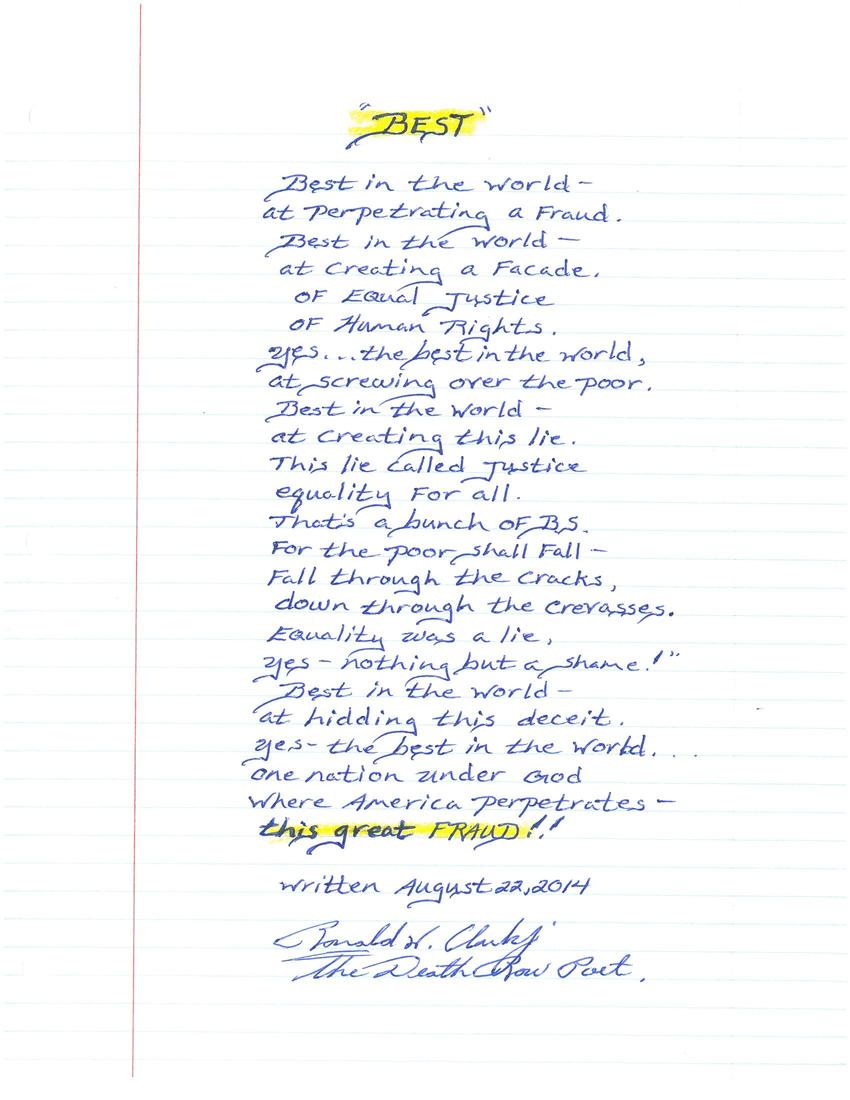 "BEST"
Best in the world -
at Perpetrating a Fraud.
Best in the world -
at creating a Facade.
OF Equal Justice
OF Human Rights.
yes...the best in the world,
at screwing over the poor.
Best in the world -
at creating this lie.
This lie called Justice
equality For all.
That's a bunch OF B.S.
For the poor shall Fall -
Fall through the cracks,
down through the crevasses.
Equality was a lie,
yes - nothing but a shame!"
Best in the world -
at hidding this deceit.
yes - the best in the world. . .
one nation under God
where America perpetrates -
this great FRAUD!!
written August 22, 2014
Ronald W. Clark Jr
The Death Row Poet.